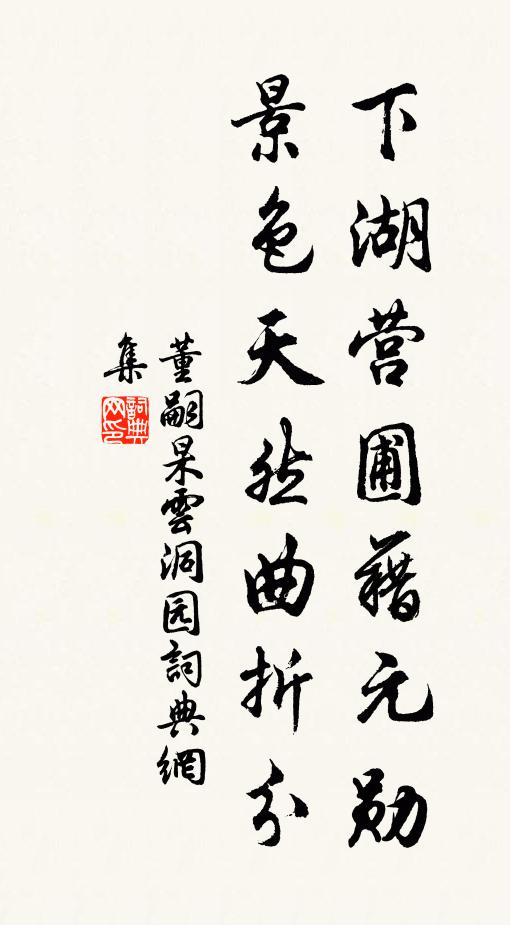 下湖营圃藉元勋
景色天然曲折分
董嗣杲雲洞园詞典網
集
詞典
网印